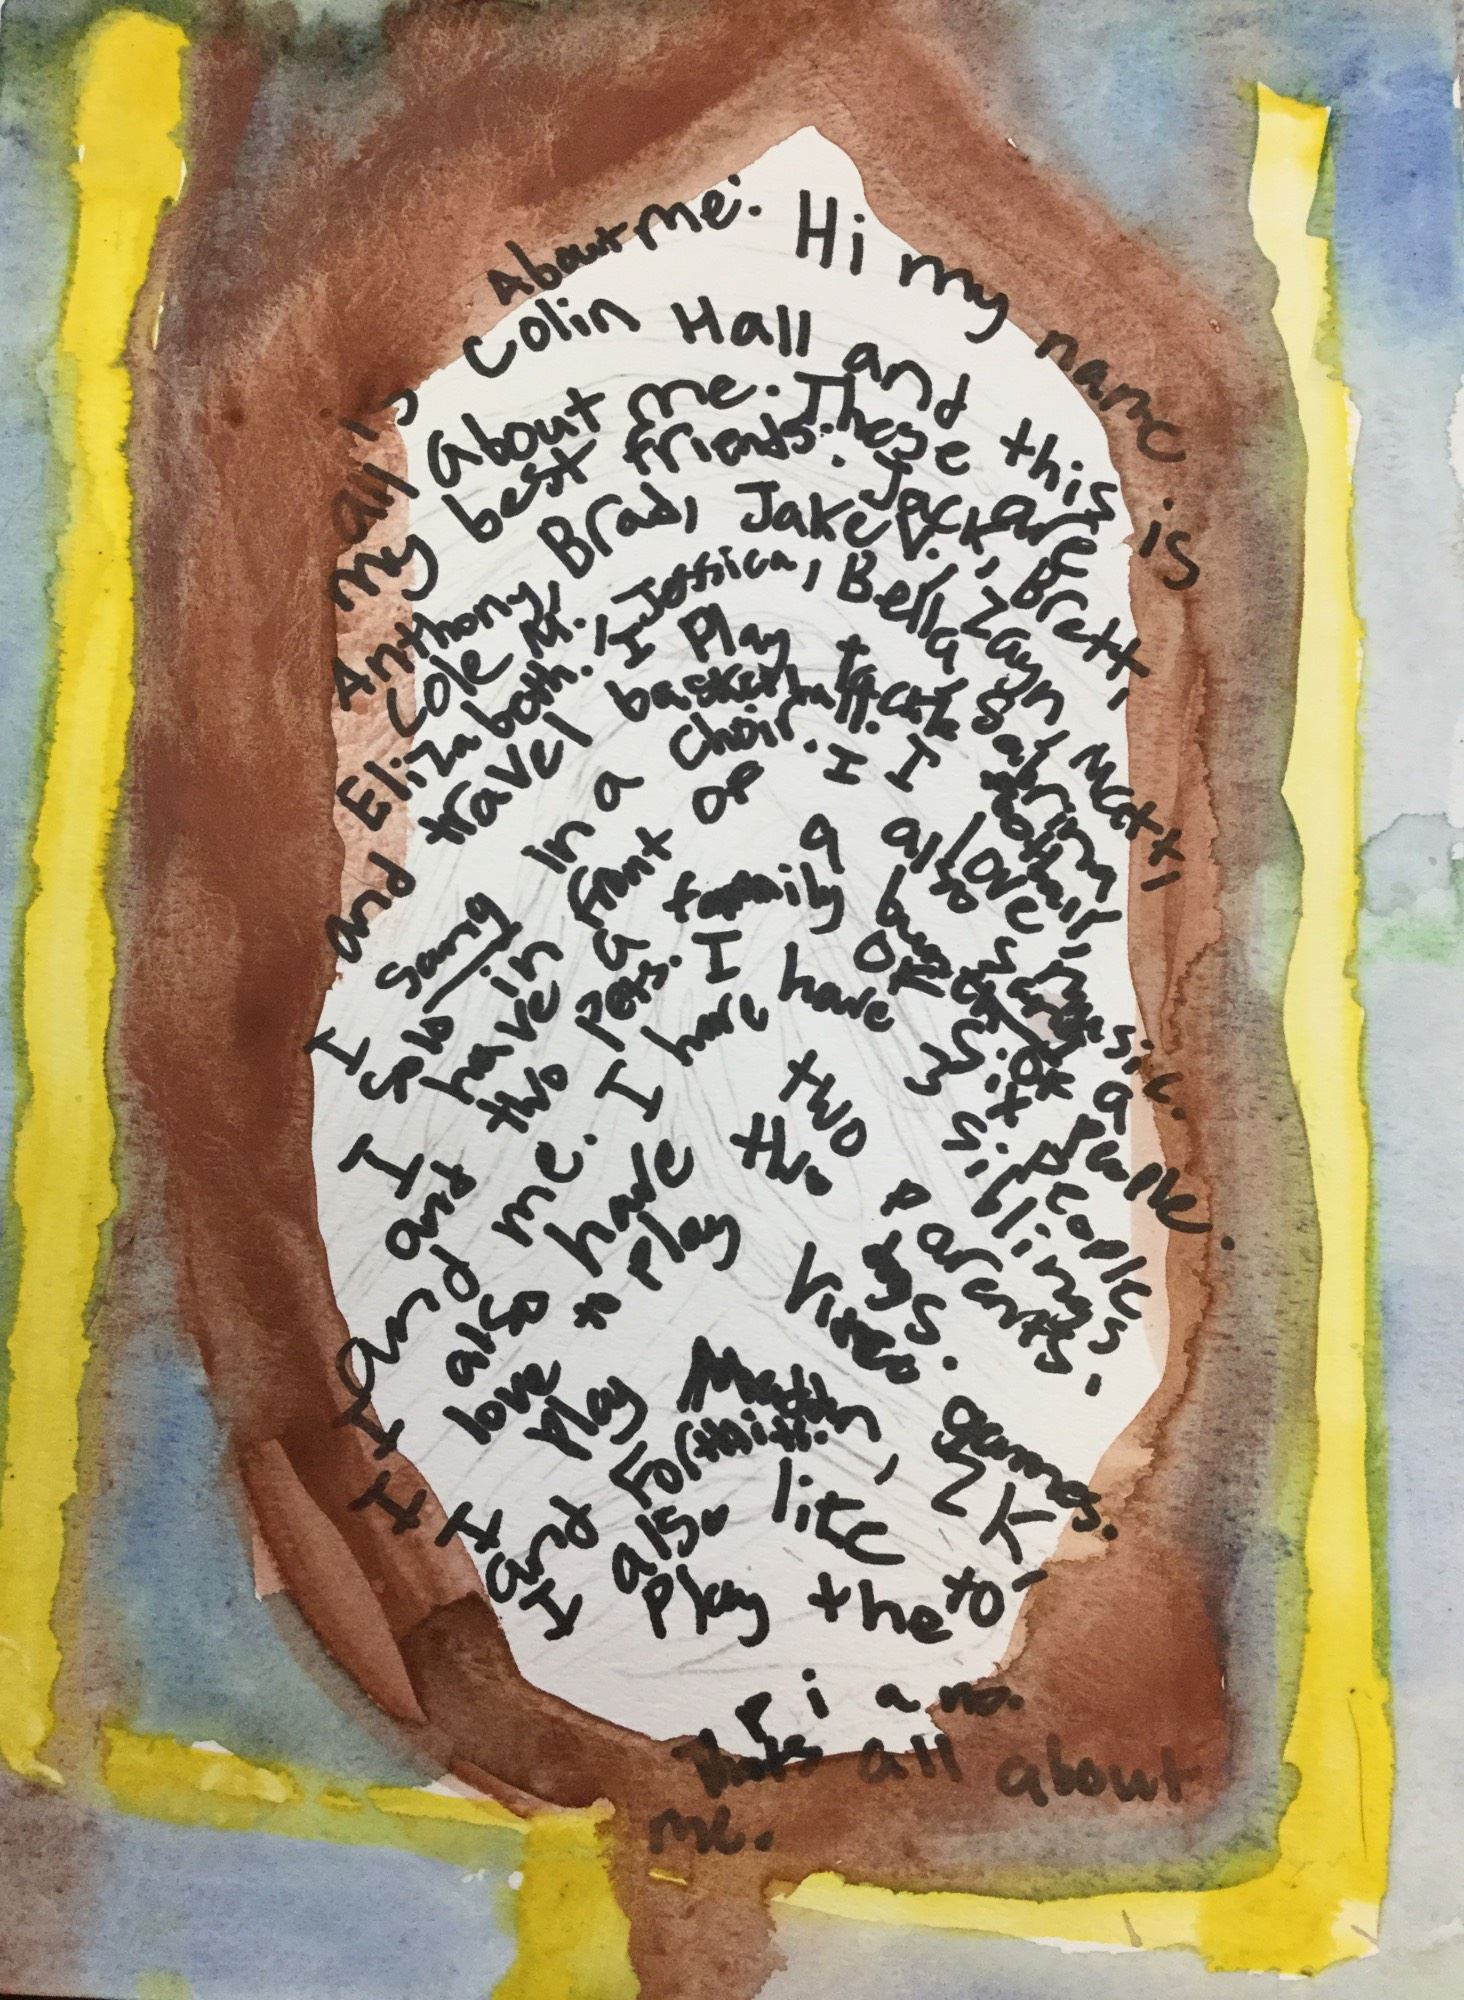 About me: Hi my name is
Colin Hall and this is
all about me. These are
my best friends: Jack, Brett,
Anthony, Brad, Jake P., Zayn, Matt,
Cole M., Jessica, Bella, Sabrina
and Elizabeth. I Play tackle football,
and travel basketball. I love music.
I sang in a choir. I also
solo in front of a bunch of people.
I have a family of six people
and two Pets. I have 3 siblings,
and me. I have two parents.
I also have two dogs.
I love to play video games.
I play Madden, 2K,
and Fortnite.
I also like to
Play the
piano.
Thats all about
me.